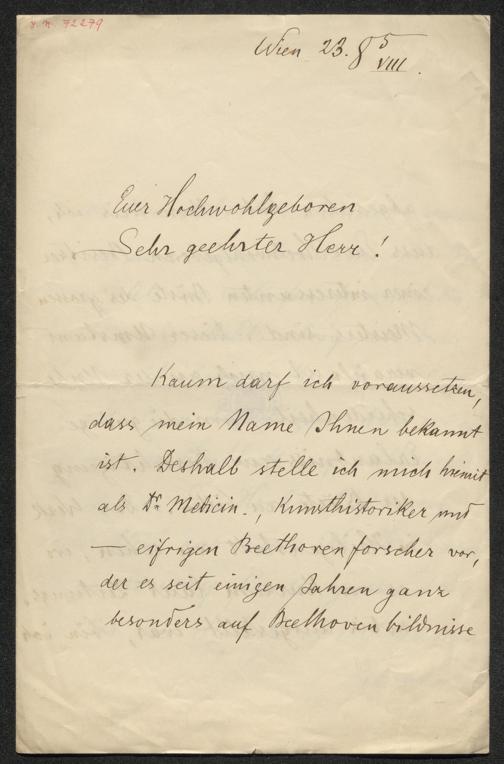 I. N. 72279
Wien 23. 85
VIII.
Euer Hochwohlgeboren
Sehr geehrter Herr!
Kaum darf ich voraussetzen,
dass mein Name Ihnen bekannt
ist. Deshalb stelle ich mich hiemit
als Dr. Medicin., Kunsthistoriker und
— eifrigen Beethovenforscher vor,
der es seit einigen Jahren ganz
besonders auf Beethovenbildnisse